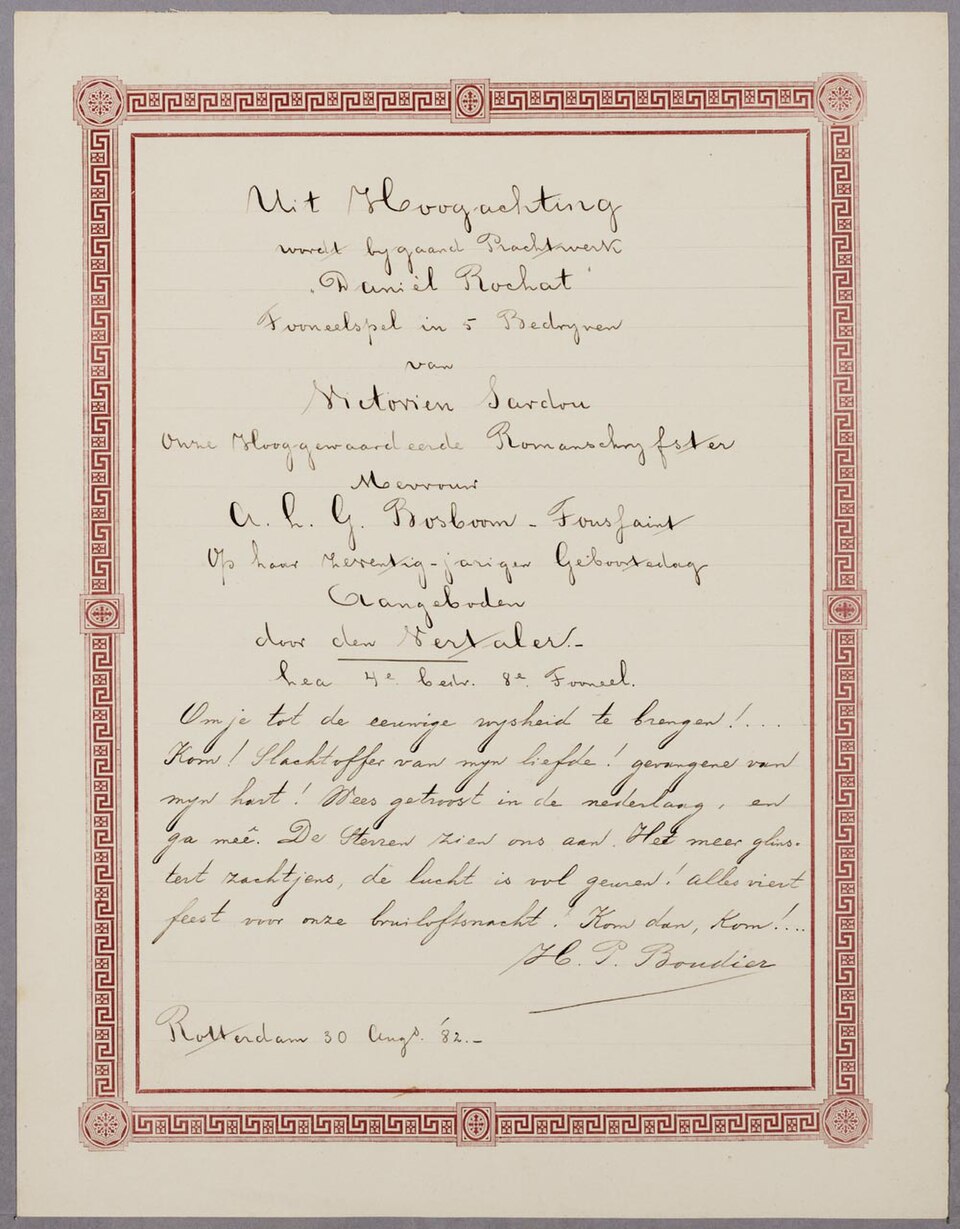 Uit Hoogachting
wordt bygaand Prachtwerk
„Daniël Rochat"
Tooneelspel in 5 Bedryven
van
Victorien Sardou
Onze Hooggewaardeerde Romanschryfster
Mevrouw
A. L. G. Bosboom - Toussaint
Op haar zeventig-jarigen Geboortedag
Aangeboden
door den Vertaler.-
Lea 4e bedr. 8e Tooneel.
Om je tot de eeuwige wysheid te brengen!....
Kom! Slachtoffer van myn liefde! gevangene van
myn hart! Wees getroost in de nederlaag, en
ga meê. De Sterren zien ons aan. Het meer glins-
tert zachtjens, de lucht is vol geuren! alles viert
feest voor onze bruiloftsnacht! Kom dan, Kom!....
H. P. Boudier
Rotterdam 30 Augs. '82.-